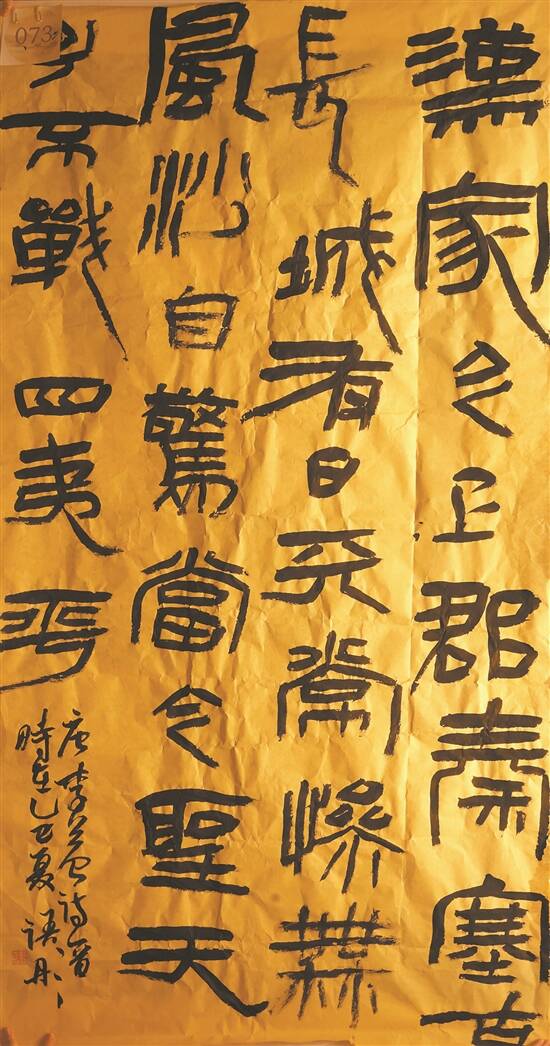 073
漢家今上郡秦塞古
長城有日云常慘無
風沙自驚當今聖天
子不戰四夷平
唐李益詩
時在乙巳夏